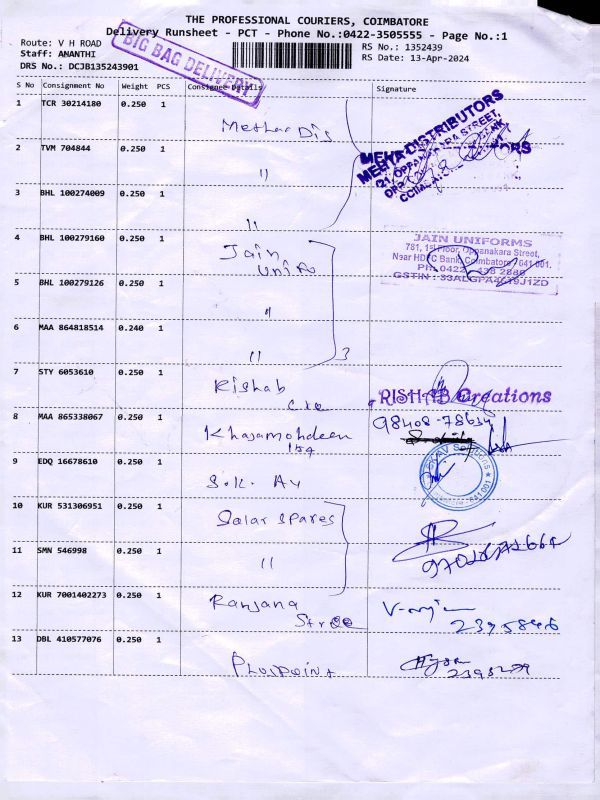 THE PROFESSIONAL COURIERS, COIMBATORE
Delivery Runsheet - PCT - Phone No.:0422-3505555 - Page No.:1
Route: V H ROAD
Staff: AMANTHI
DRS No.: DCJB135243901
RS No.: 1352439
RS Date: 13-Apr-2024
BIG BAG DELIVERY
S No Consignment No Weight PCS Consignee Details Signature
1 TCR 30214180 0.250 1
2 TVM 704844 0.250 1 "
3 BHL 100274009 0.250 1 "
MEHA DISTRIBUTORS
4 BHL 100279160 0.240 1 Jain
Unifo
JAIN UNIFORMS
781, 1st Floor, Oppanakara Street,
Near HDFC Bank, Coimbatore - 641 001.
5 BHL 100279126 0.250 1 "
6 MAA 864818514 0.240 1 "
7 STY 6053610 0.250 1 Rishab
Cre
RISHAB Creations
8 MAA 865338067 0.250 1 Khajamohdeen
98408-78634
9 EDQ 16678610 0.250 1 S.K. Av
10 KUR 531306951 0.250 1 Salar Spares
11 SMN 546998 0.250 1 "
12 KUR 7001402273 0.250 1 Ranjana
Stree
13 DBL 410577076 0.250 1 Pluspoint